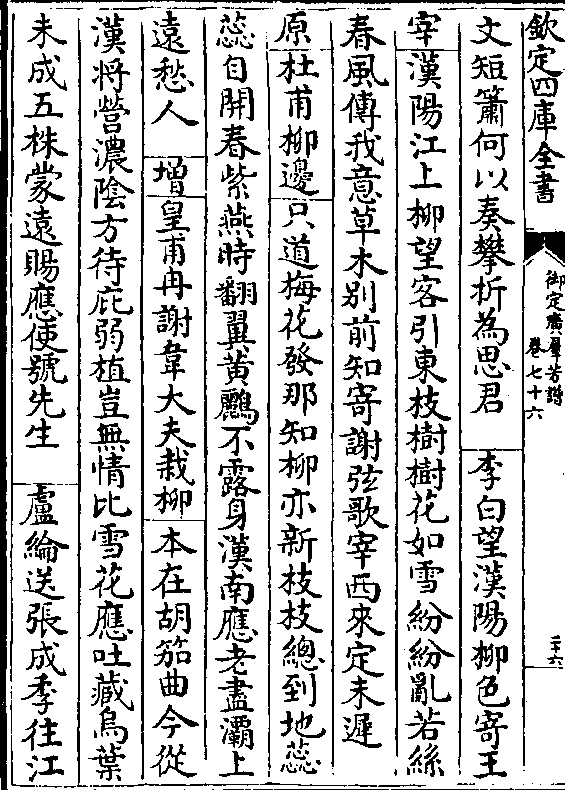 欽定四庫全書
御定廣羣芳譜
卷七十六
二十六
文短簫何以奏攀折為思君　李白望漢陽柳色寄王
宰漢陽江上柳望客引東枝樹樹花如雪紛紛亂若絲
春風傳我意草木别前知寄謝弦歌宰西來定未遲
原杜甫柳邊只道梅花發那知柳亦新枝枝總到地蕊
蕊自開春紫燕時翻翼黄鸝不露身漢南應老盡灞上
遠愁人　增皇甫冉謝韋大夫栽柳本在胡笳曲今從
漢將營濃陰方待庇弱植豈無情比雪花應吐藏烏葉
未成五株蒙遠賜應使號先生　盧綸送張成季往江